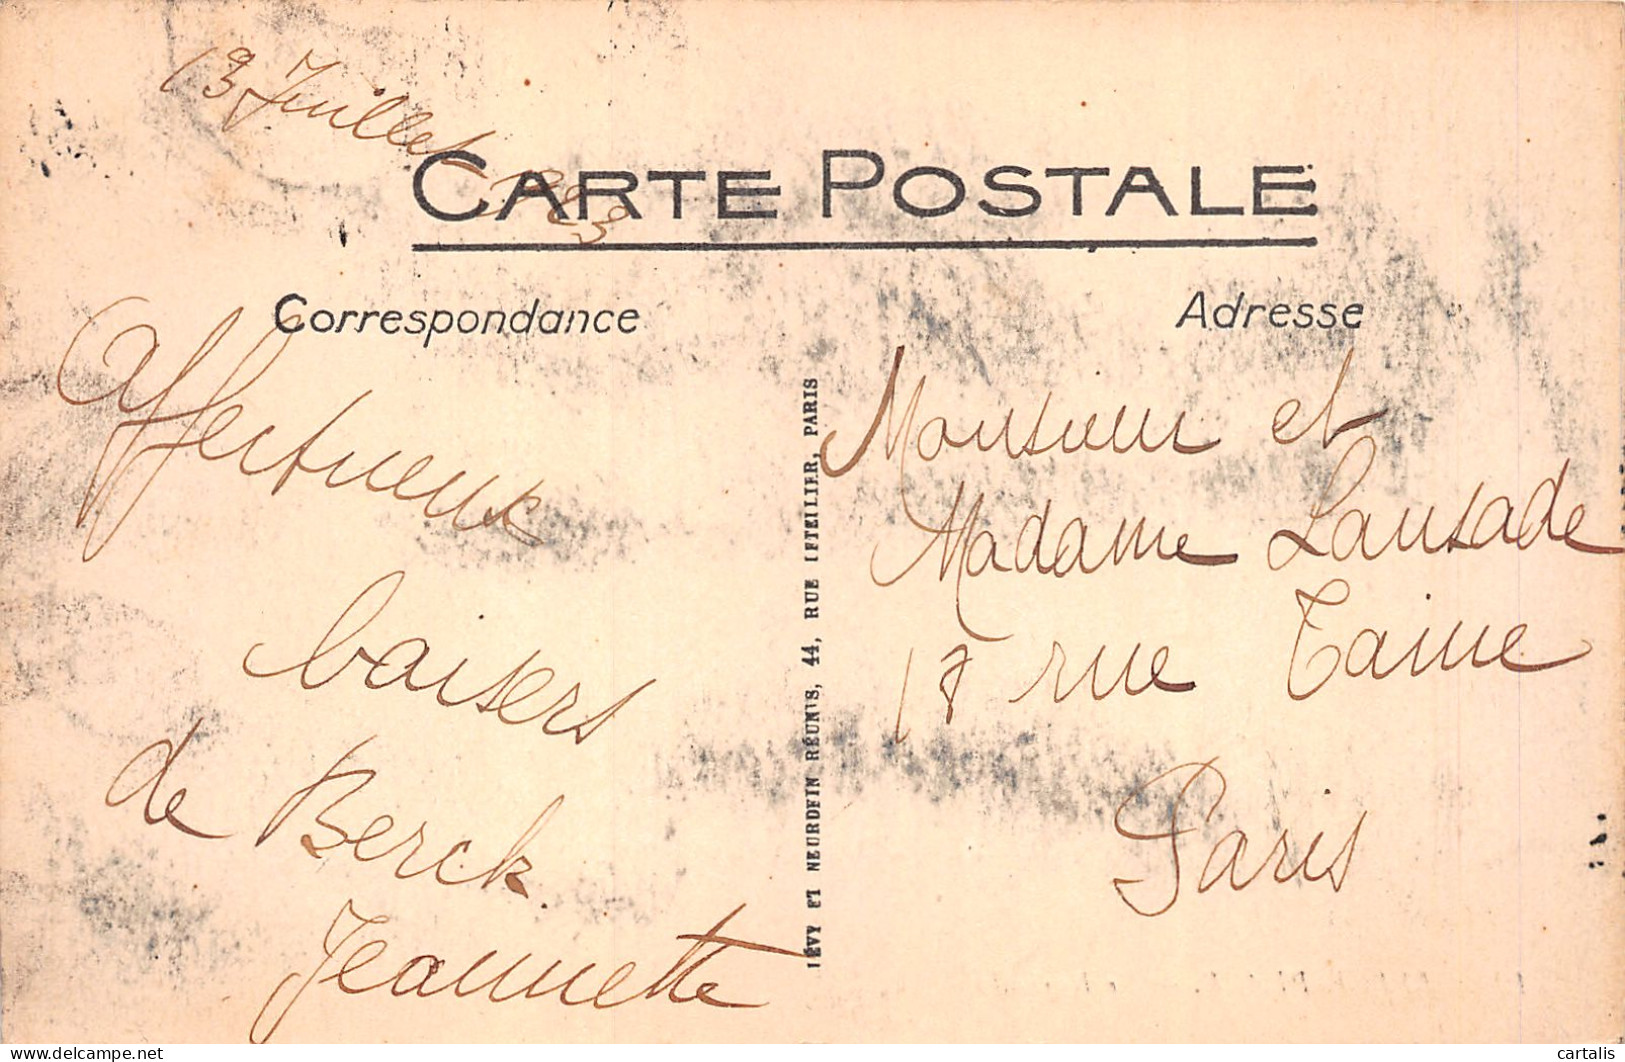 13 Juillet 1923
CARTE POSTALE
Correspondance
Affectueux
baisers
de Berck
Jeannette
LÉVY ET NEURDEIN RÉUNIS, 44, RUE LETELLIER, PARIS
Adresse
Monsieur et
Madame Lansade
17 rue Taine
Paris
cartalis
delcampe.net